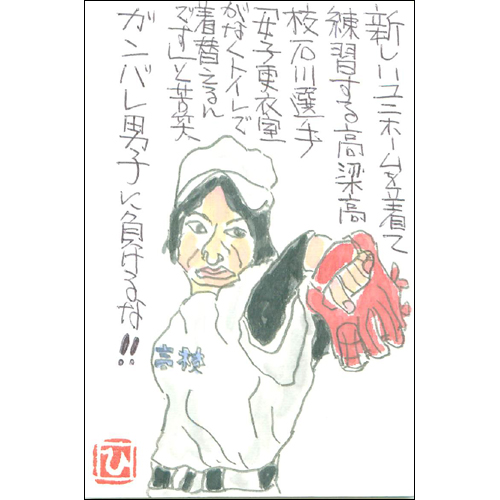 新しいユニホームを着て
練習する高梁高
校石川選手
「女子更衣室
がなくトイレで
着替えるん
です」と苦笑
ガンバレ男子に負けるな!!
高校
ひ